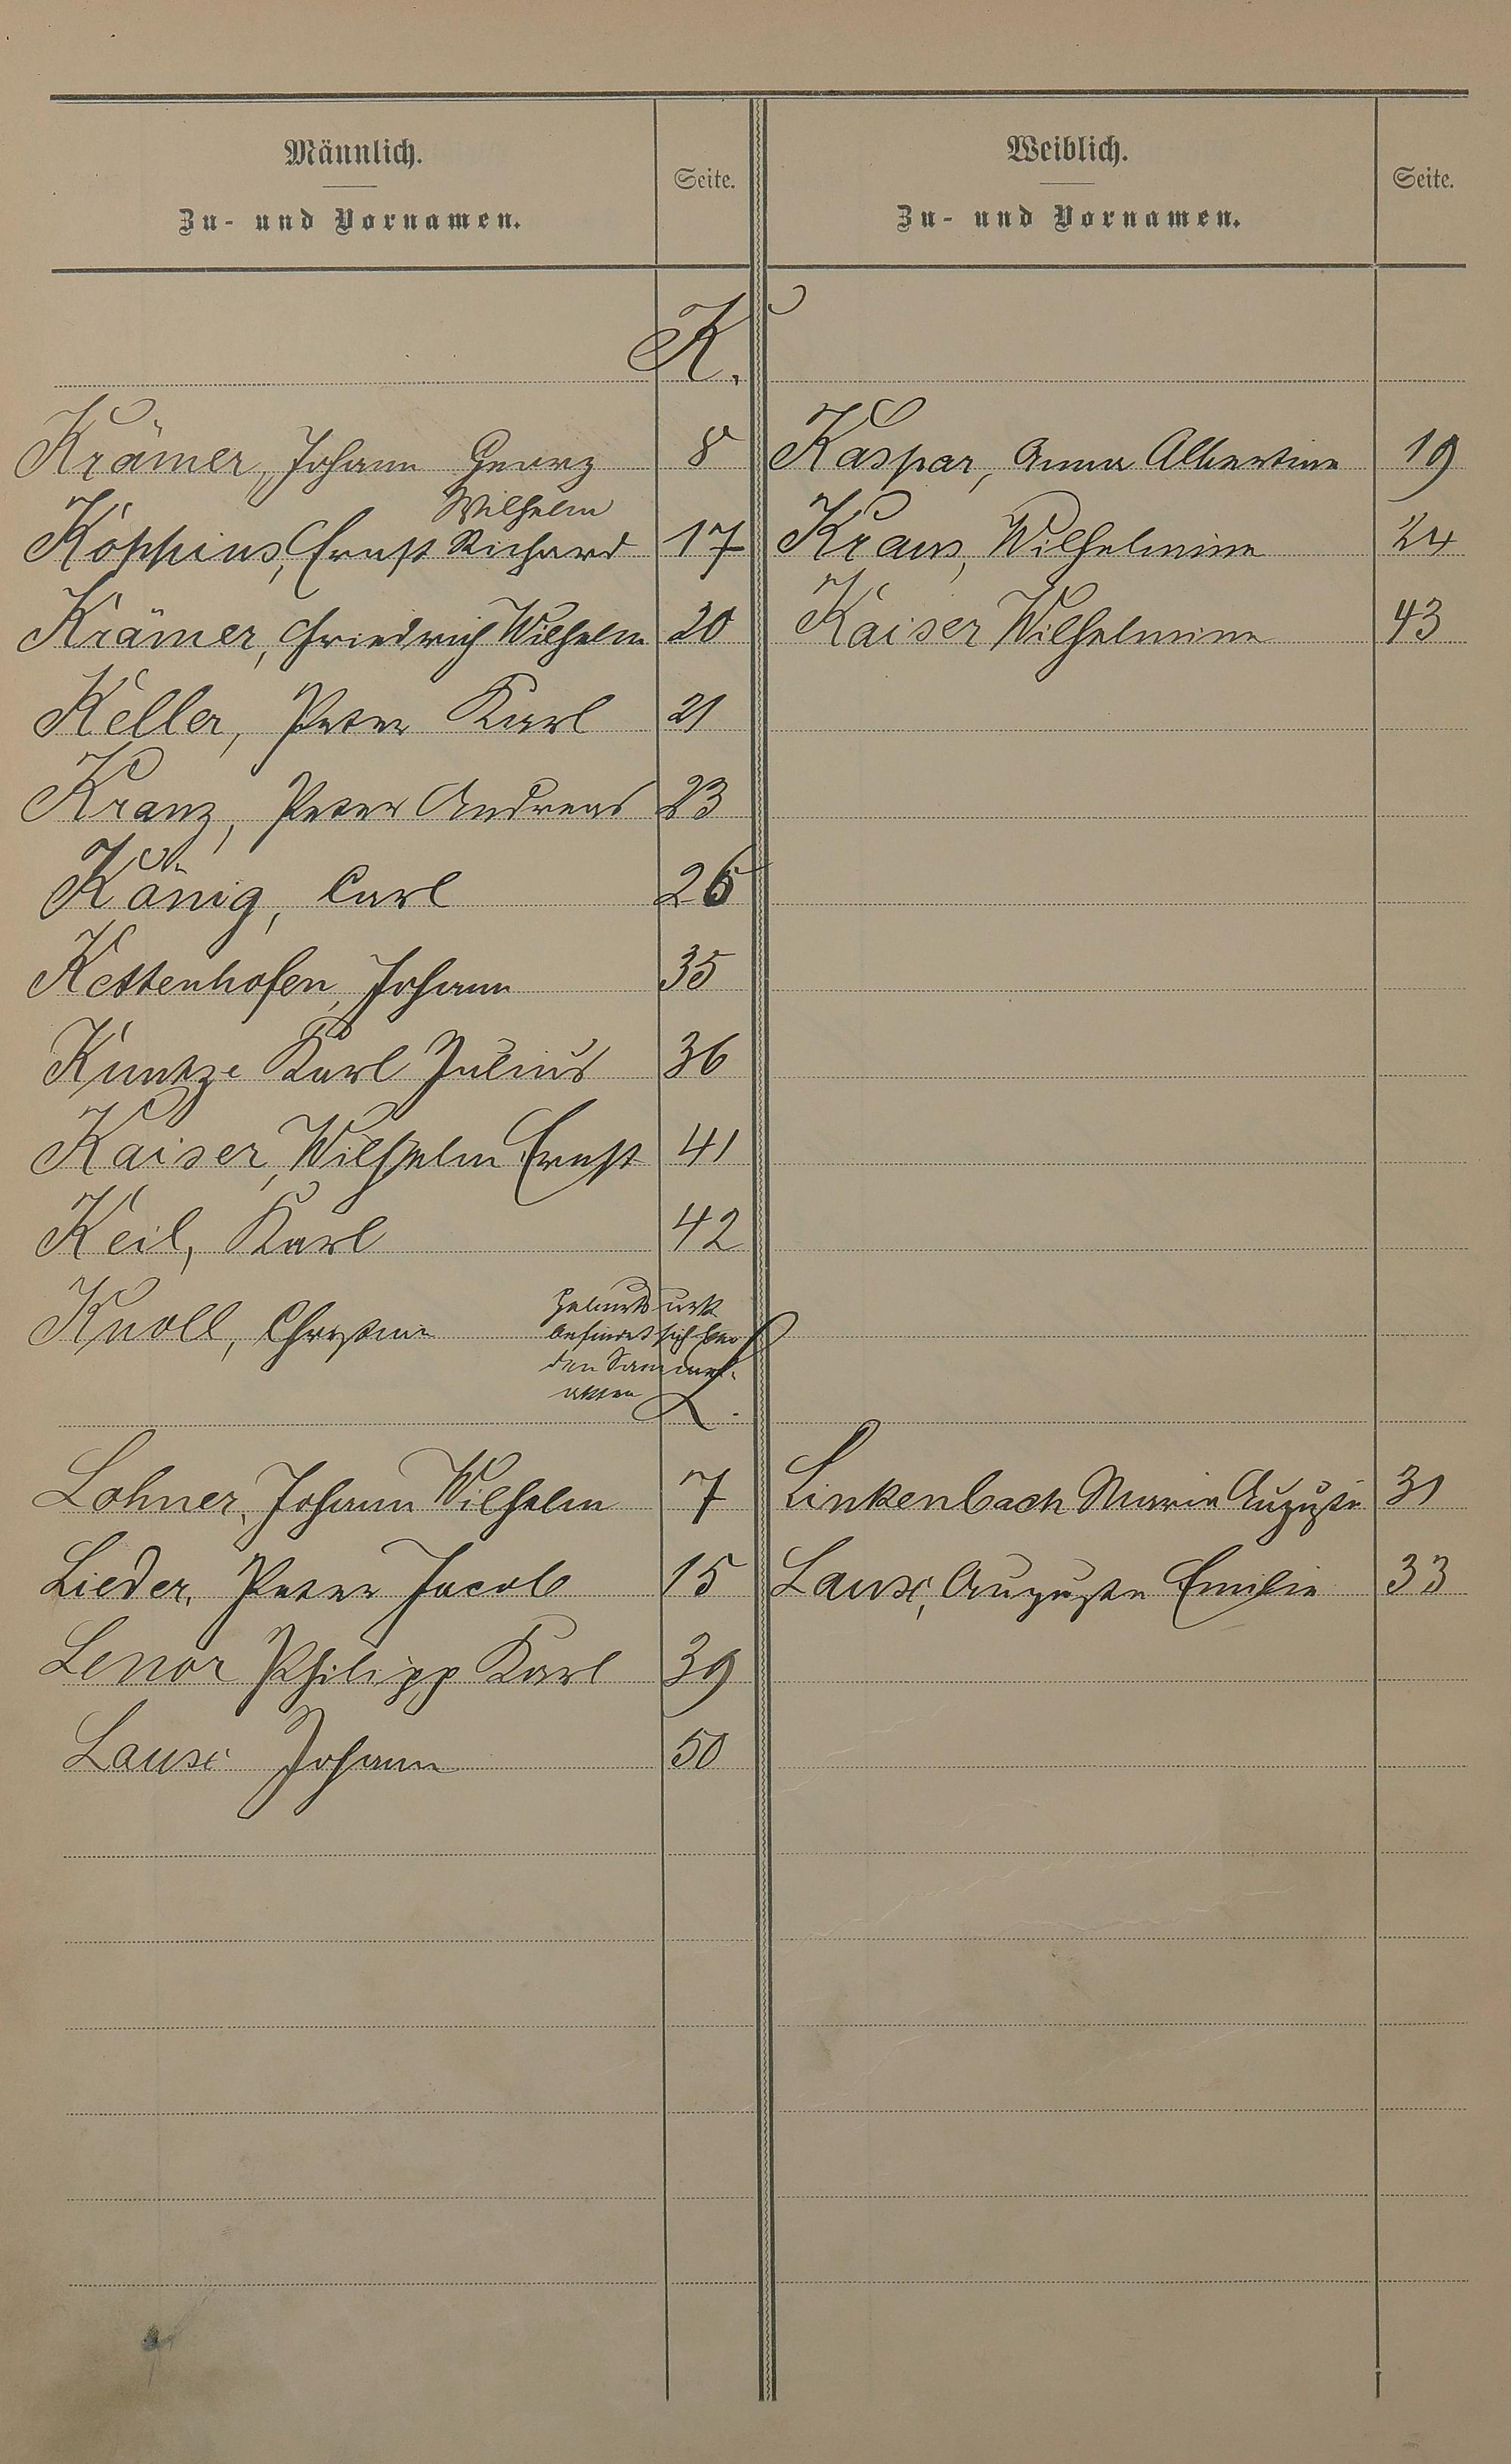 Männlich.
Zu- und Vornamen.
Seite.
Weiblich.
Zu- und Vornamen.
Seite.
K.
Krämer, Johann Georg 8 Kaspar, Anna Albertine 19
Wilhelm
Köppius, Ernst Richard 17 Kraus, Wilhelmine 24
Krämer, Friedrich Wilhelm 20 Kaiser Wilhelmine 43
Keller, Peter Karl 21
Kranz, Peter Andreas 23
König, Carl 26
Kettenhofen, Johann 35
Kuntze Karl Julius 36
Kaiser, Wilhelm Ernst 41
Keil, Karl 42
Knoll, Christine
Geburtsurk
befindet sich bei
den Sammel-
akten
L.
Lohner, Johann Wilhelm 7 Linkenbach Maria Auguste 31
Lieder, Peter Jacob 15 Laux, Auguste Emilie 33
Lenor Philipp Karl 39
Laux Johann 50